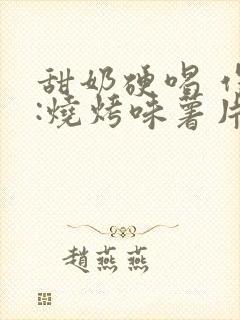 甜奶硬唱
:燒烤味薯片
趙燕燕